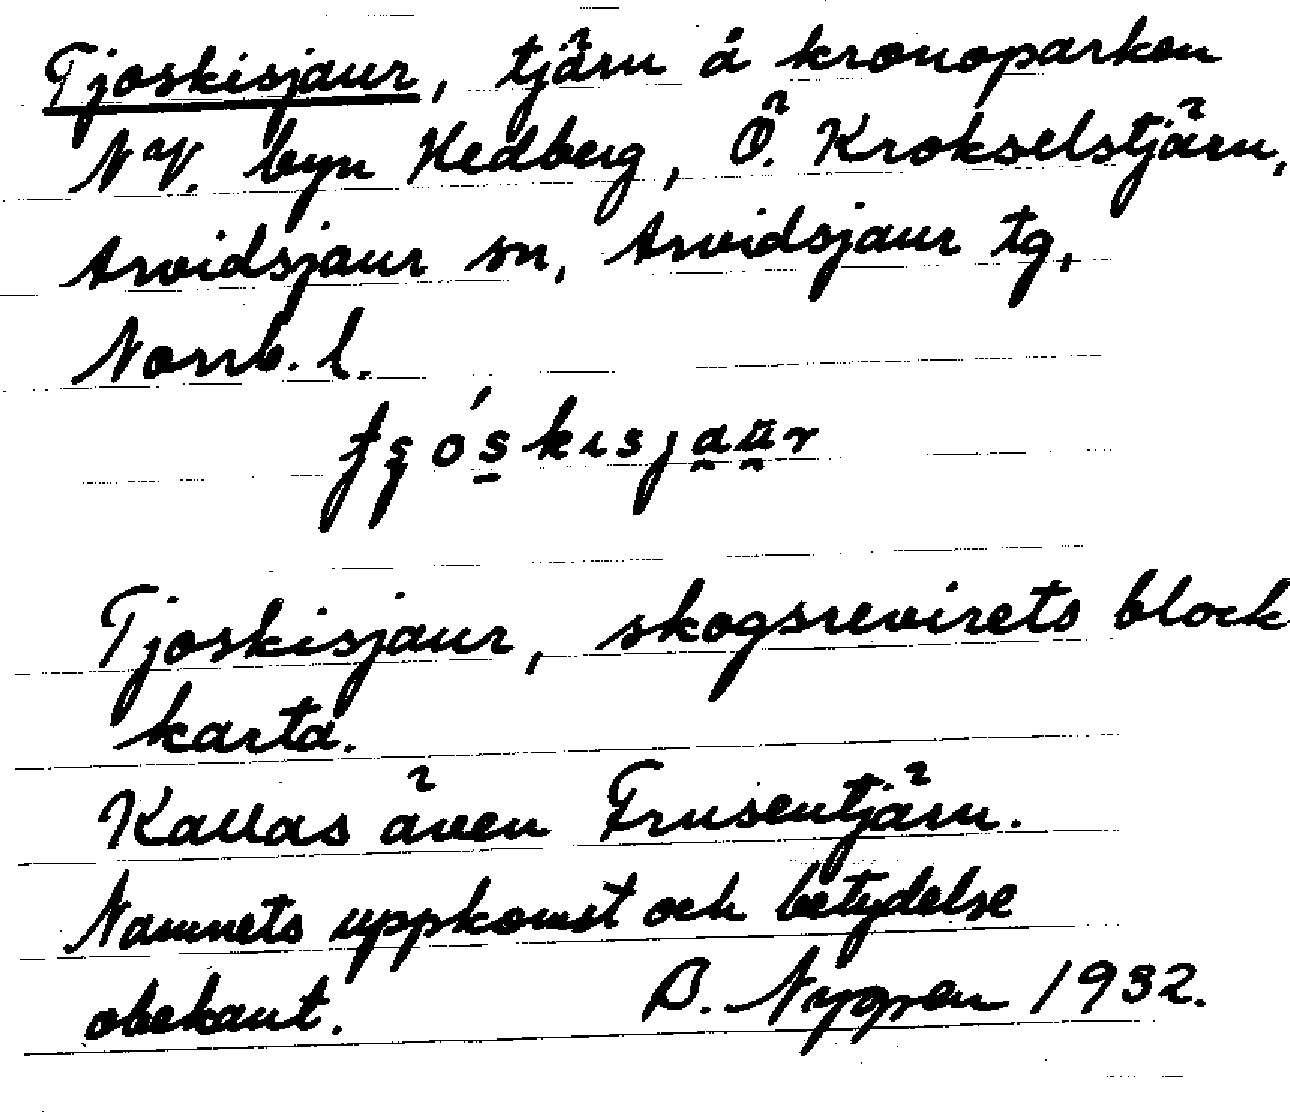 Tjoskisjaur, tjärn å kronoparken
N V. byn Hedberg, Ö. Krokselstjärn,
Arvidsjaur sn, Arvidsjaur tg,
Norrb. l.
Tjoskisjaur, skogsrevirets block
karta.
Kallas även Frusentjärn.
Namnets uppkomst och betydelse
obekant. B. Nygren 1932.